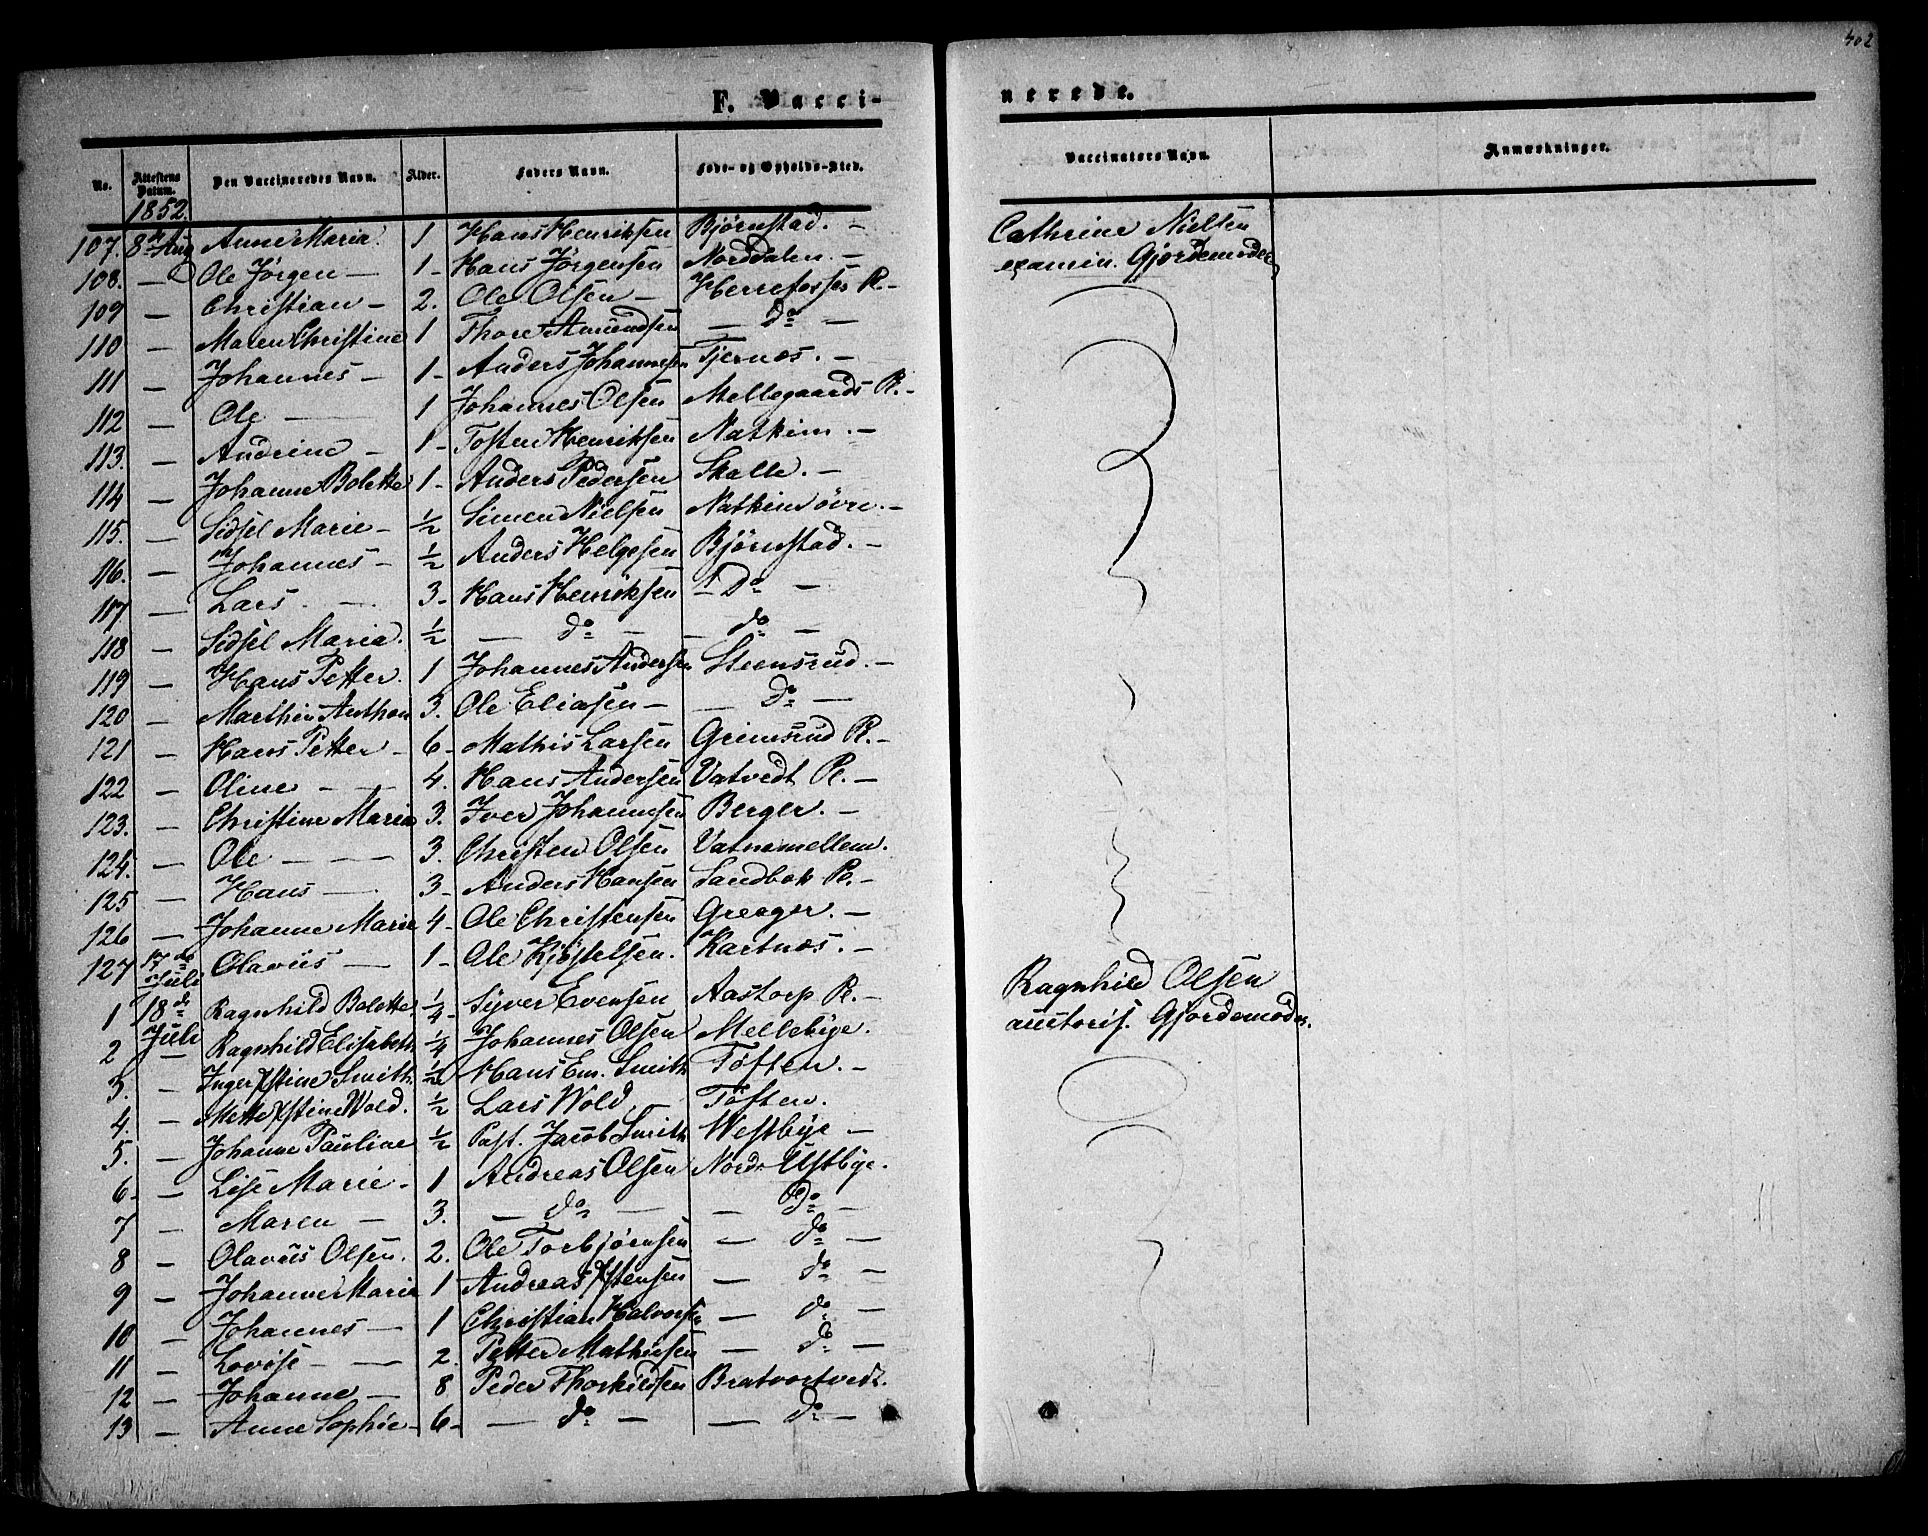 402
F. Vacci-
nerede.
No. Attestens Datum. Den Vaccineredes Navn. Alder. Faders Navn. Føde- og Opholds-Sted.
Vaccinateurs Navn. Anmærkninger.
1852.
107. 8de Aug Anne Maria. 1 Hans Henriksen Bjørnstad. — Cathrine Nielsen
108. — Ole Jørgen — 1 - Hans Jørgensen Norddalen. — examin. Gjordemoder
109 — Christian - 2. Ole Olsen — Herrefosser P. -
110 — Maren Christine 1 Thore Amundsen — do —
111 — Johannes — 1 - Anders Johannesen Tjernæs. —
112 — Ole — 1 Johannes Olsen Mellegaards P. -
113. — Andrine — 1 - Tosten Henriksen Natkim. —
114 — Johanne Bolette 1 - Anders Pedersen Skalle. —
115. — Sidsel Marie - 1/2 Simen Nielsen Natkim øvre. -
116. — Johannes - 1/2 Anders Helgesen Bjørnstad. -
117 — Lars. — 3 - Hans Henriksen — Do —
118 — Sidsel Maria. 1/2 — do — — do —
119 — Hans Petter. 1 Johannes Andersen Steensrud. -
120 — Marthin Anthon 3. Ole Eliasen - — Do —
121 — Hans Petter - 6 - Mathis Larsen Grimsrud P. -
122 — Oline — 4. Hans Andersen Vatvedt P. -
123. — Christine Maria 3. Iver Johannesen Berger. -
124. — Ole — — 3. Christen Olsen Vatnemellem.
125 — Hans — 3 - Anders Hansen Sandbok P. -
126 — Johanne Marie 4 - Ole Christensen Greager. —
127 17de Juli Olavus — 1 - Ole Kjøstelsen. Kartnæs. — Ragnhild Olsen
1 18de Juli Ragnhild Bolette 1/4 - Syver Evensen Aastorp P. — auctoris. Gjordemoder.
2 — Ragnhild Elisabeth 1/4 Johannes Olsen Mellebye.
3. — Inger Xstine Smith 1/2 Hans Em. Smith Toften. —
4. — Mette Xstine Wold. 1/2 Lars Wold Toften.
5. — Johanne Pauline 1/2 Past. Jacob Smith Westbye —
6 - — Lise Marie - 1 Andreas Olsen Nordr Ustbye.
7 — Maren — 3. — do — — Do —
8 — Olavus Olsen. 2. Ole Torbjørnsen — do —
9 — Johanne Marie 1 Andreas Xstensen — do —
10 — Johannes — 1 Christian Halvorsen — do —
11 — Lovise — 2. Petter Mathiesen — do —
12 — Johanne — 8 Peder Thorkildsen Bratvortvedt.
13 — Anne Sophie - 6 - — do — — Do —